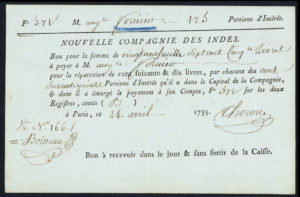 Fo 572 M. aug.te Vernier 125 Portions d'Intérêt.
NOUVELLE COMPAGNIE DES INDES.
Bon pour la somme de vingt Sept cent Cinq.te Livres
à payer à M. aug.te Vernier
pour la répartition de cent soixante & dix livres, par chacune des cent
Portions d'Intérêt qu'il a dans le Capital de la Compagnie,
& dont il a émargé le payement à son Compte, Fo 572 sur les deux
Registres, cottés B
à Paris, ce 24 avril 1791.
Vu No 166
Boisseau
Bon à recevoir dans le jour & sans sortir de la Caisse.